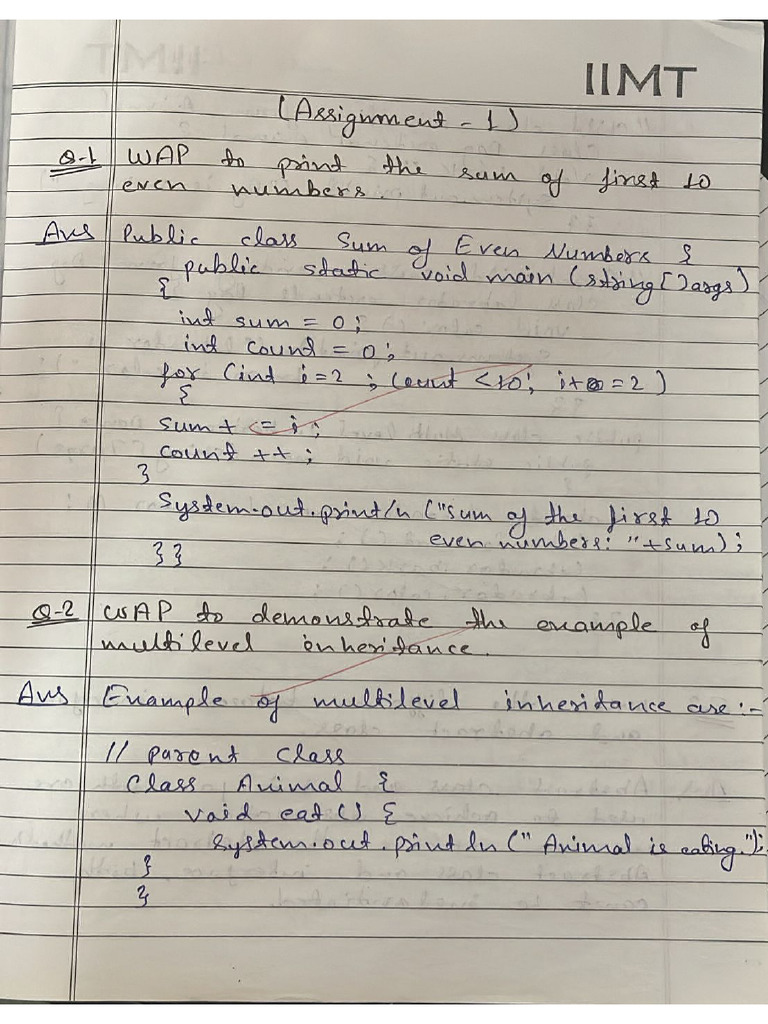 IIMT
(Assignment - 1)
Q-1 WAP to print the sum of first 10
even numbers.
Ans Public class Sum of Even Numbers {
public static void main (string [] args)
{
int sum = 0;
int count = 0;
for (int i=2 ; count <10; i+=2)
{
sum + <= i;
count ++ ;
}
System.out.print/n ("sum of the first 10
even numbers: "+sum);
}}
Q-2 WAP to demonstrate the example of
multilevel inheritance.
Ans Example of multilevel inheritance are :-
// parent class
Class Animal {
void eat () {
System.out.print ln (" Animal is eating.");
}
}